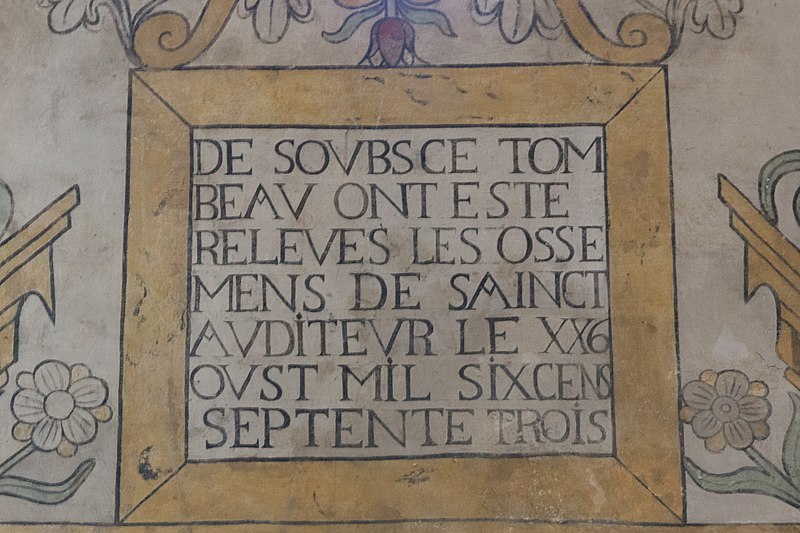 DE SOVBSCE TOM
BEAV ONT ESTE
RELEVES LES OSSE
MENS DE SAINCT
AVDITEVR LE XX6
OVST MIL SIXCENS
SEPTENTE TROIS